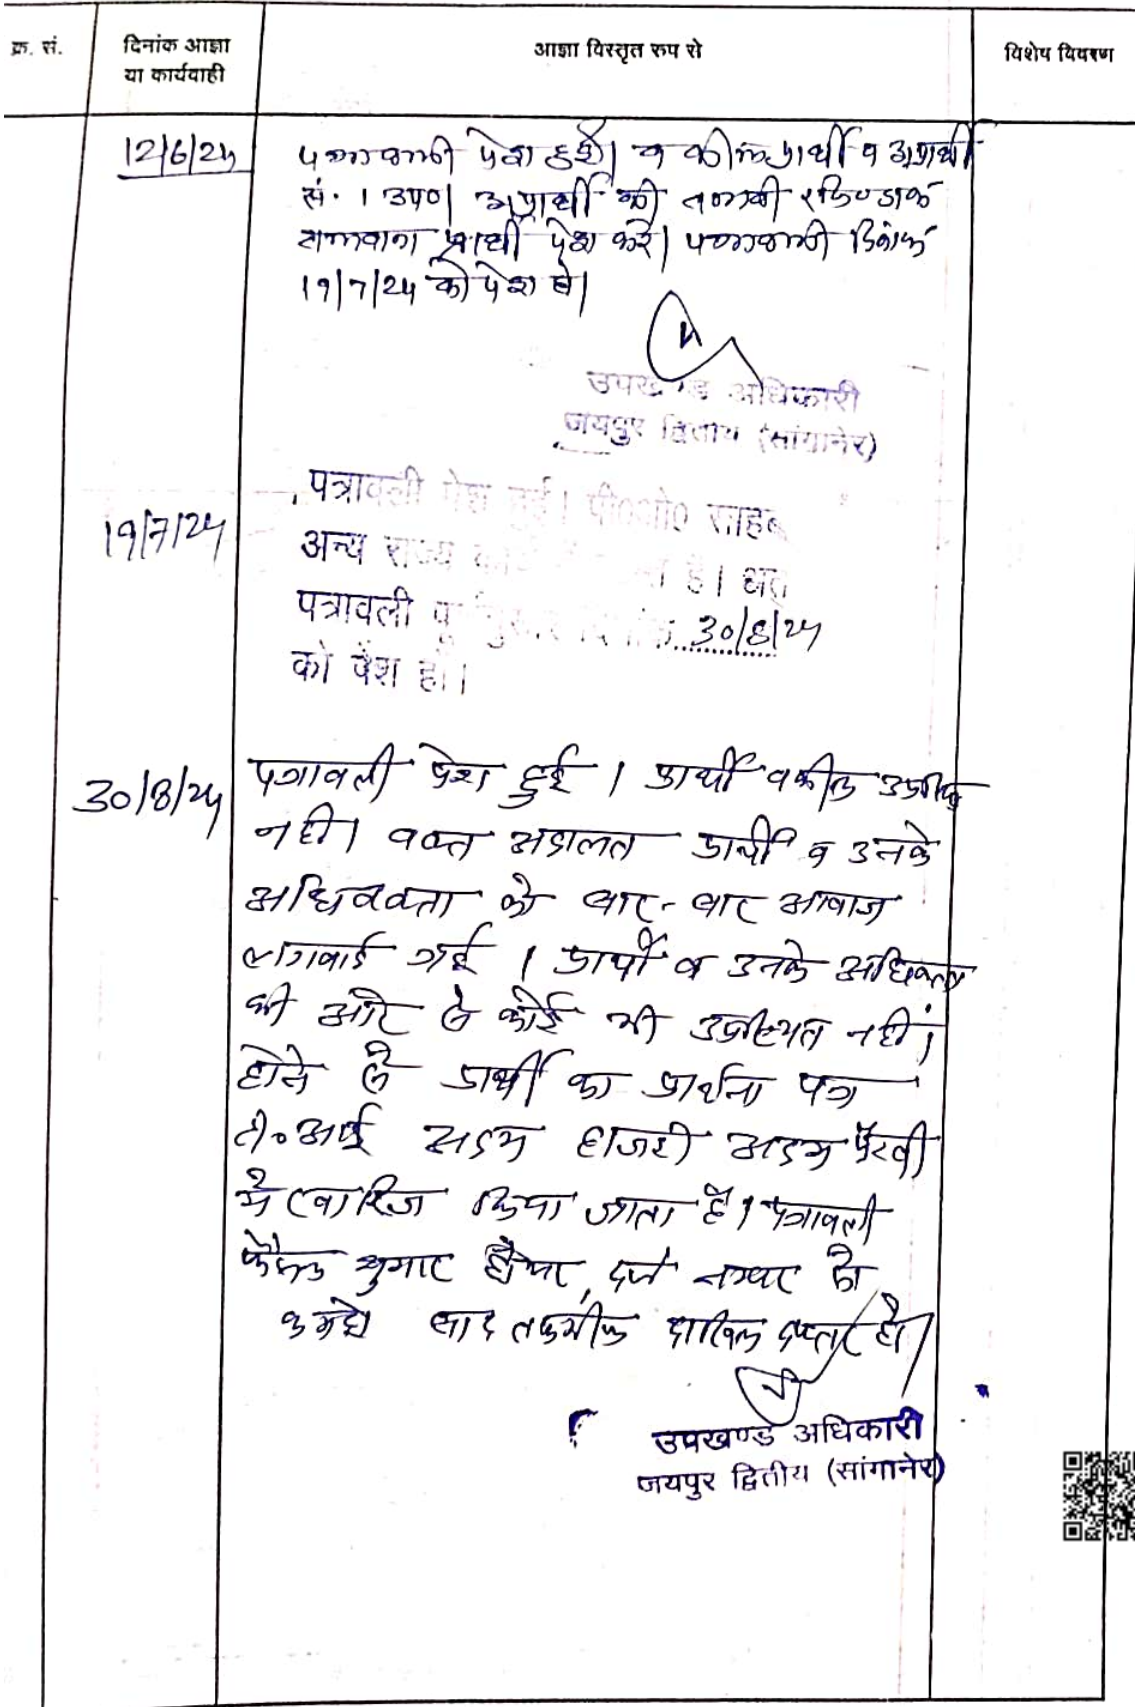 क्र. सं.
दिनांक आज्ञा
या कार्यवाही
आज्ञा विस्तृत रुप से
विशेष विवरण
12/6/24
पत्रावली पेश हुई। वकील प्रार्थी व अप्रार्थी
सं. 1 उप0। अप्रार्थी की तलबी रजि०डाक
तलवाना प्रार्थी पेश करें। पत्रावली दिनांक
19/7/24 को पेश हो।
उपखण्ड अधिकारी
जयपुर द्वितीय (सांगानेर)
19/7/24
पत्रावली पेश हुई। पी0ओ0 साहब
अन्य राज्य है। अतः
पत्रावली 30/8/24
को पेश हो।
30/8/24
पत्रावली पेश हुई । प्रार्थी वकील उपस्थित
नही। वक्त अदालत प्रार्थी व उनके
अधिवक्ता को बार-बार आवाज
लगवाई गई । प्रार्थी व उनके अधिवक्ता
की ओर से कोई भी उपस्थित नहीं।
होने से प्रार्थी का प्रार्थना पत्र
टी०आई अदम हाजरी अदम पैरवी
मे खारिज किया जाता है। पत्रावली
फैसल शुमार होकर, दर्ज नम्बर से
कम हो बाद तकमील दाखिल दफ्तर हो।
उपखण्ड अधिकारी
जयपुर द्वितीय (सांगानेर)